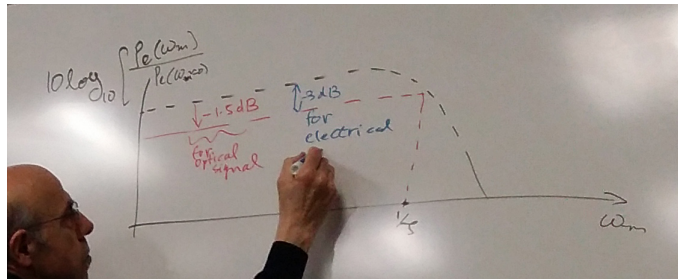 10log₁₀ [Pe(ωm)/Pe(ωm=0)]
-1.5dB
for
optical
signal
-3dB
for
electrical
1/τ
ωm